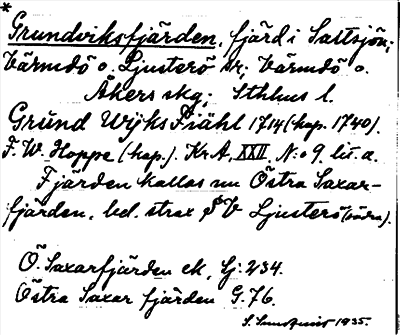 *
Grundviksfjärden, fjärd i Saltsjön;
Värmdö o. Ljusterö sn; Värmdö o.
Åkers skg; Sthlms l.
Grund Wijks Fiähl 1714 (kop. 1740).
F. W. Hoppe (kop.). Kr. A, XXII. N:o 9 lit. a.
Fjärden kallas nu Östra Saxar-
fjärden, bel. strax SV Ljusterö (södra).
Ö. Saxarfjärden ek, Gj: 234.
Östra Saxar fjärden G. 76.
S. Sundqvist 1935.